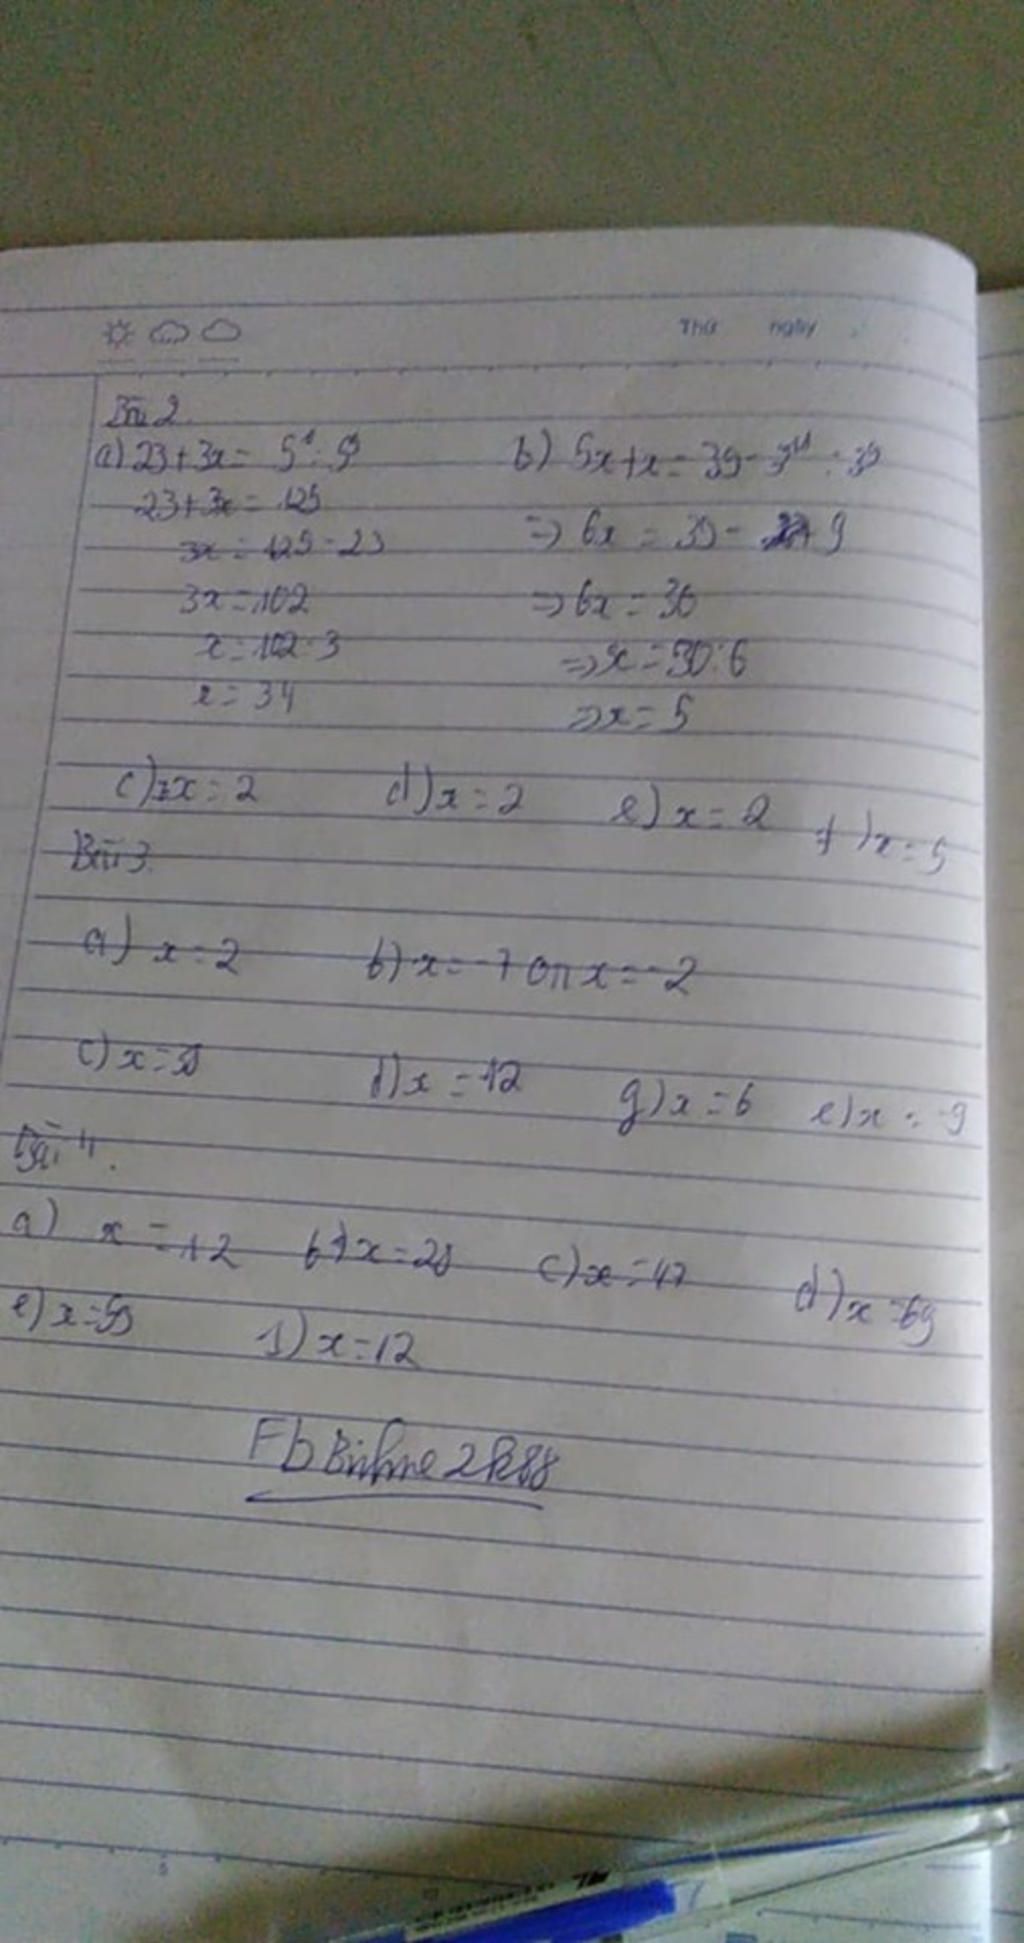 Thứ ngày
Bài 2.
a) 23+3x= 5⁶:5³
23+3x= 125
3x= 125-23
3x=102
x=102:3
x=34
b) 5x+x=39-3¹¹:3⁹
=> 6x = 39- 9
=> 6x = 30
=> x = 30:6
=> x = 5
c) x=2 d) x=2 e) x=2 f) x=5
Bài 3.
a) x=2 b) x=-7 x=-2
c) x= d) x=12 g) x=6 e) x=-9
Bài 4.
a) x=12 b) x=28 c) x=47 d) x=69
e) x= 1) x=12
Fb 2k88